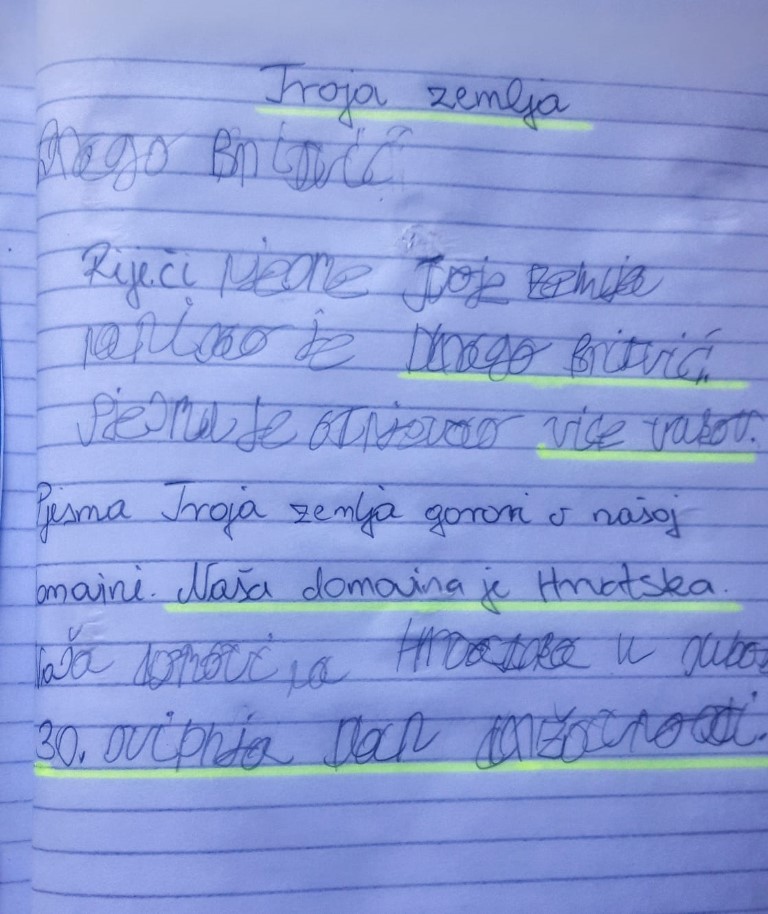 Tvoja zemlja
Drago Britvić
Riječi pjesme Tvoje zemlje
napisao je Drago Britvić.
Pjesmu je otpjevao vice vukov.
Pjesma Tvoja zemlja govori o našoj
omovini. Naša domovina je Hrvatska.
Naša domovina Hrvatska u
30. svibnja dan državnosti.